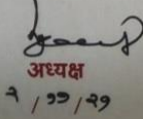 अध्यक्ष
२/११/२१